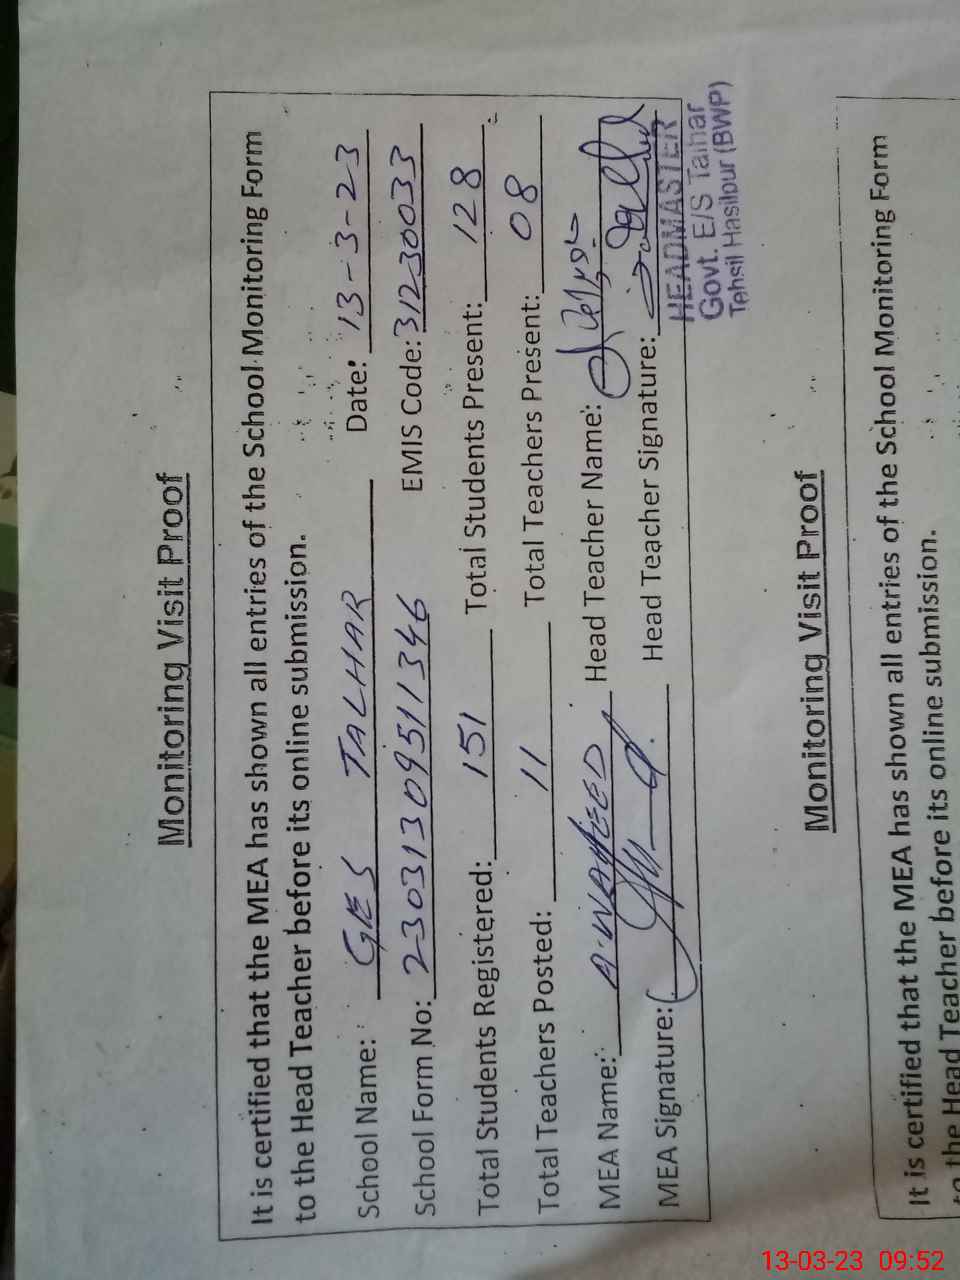 Monitoring Visit Proof
It is certified that the MEA has shown all entries of the School Monitoring Form
to the Head Teacher before its online submission.
School Name: GES TALHAR Date: 13-3-23
School Form No: 23031309511346 EMIS Code: 31230033
Total Students Registered: 151 Total Students Present: 128
Total Teachers Posted: 11 Total Teachers Present: 08
MEA Name: A.WAHEED Head Teacher Name:
MEA Signature: Head Teacher Signature:
HEADMASTER
Govt. E/S Talhar
Tehsil Hasilpur (BWP)
Monitoring Visit Proof
It is certified that the MEA has shown all entries of the School Monitoring Form
to the Head Teacher before its online submission.
13-03-23 09:52